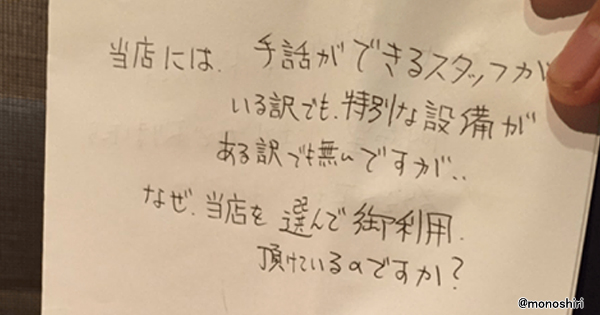 当店には、手話ができるスタッフが
いる訳でも、特別な設備が
ある訳でも無いですが..
なぜ、当店を選んで御利用
頂けているのですか?
@monoshiri